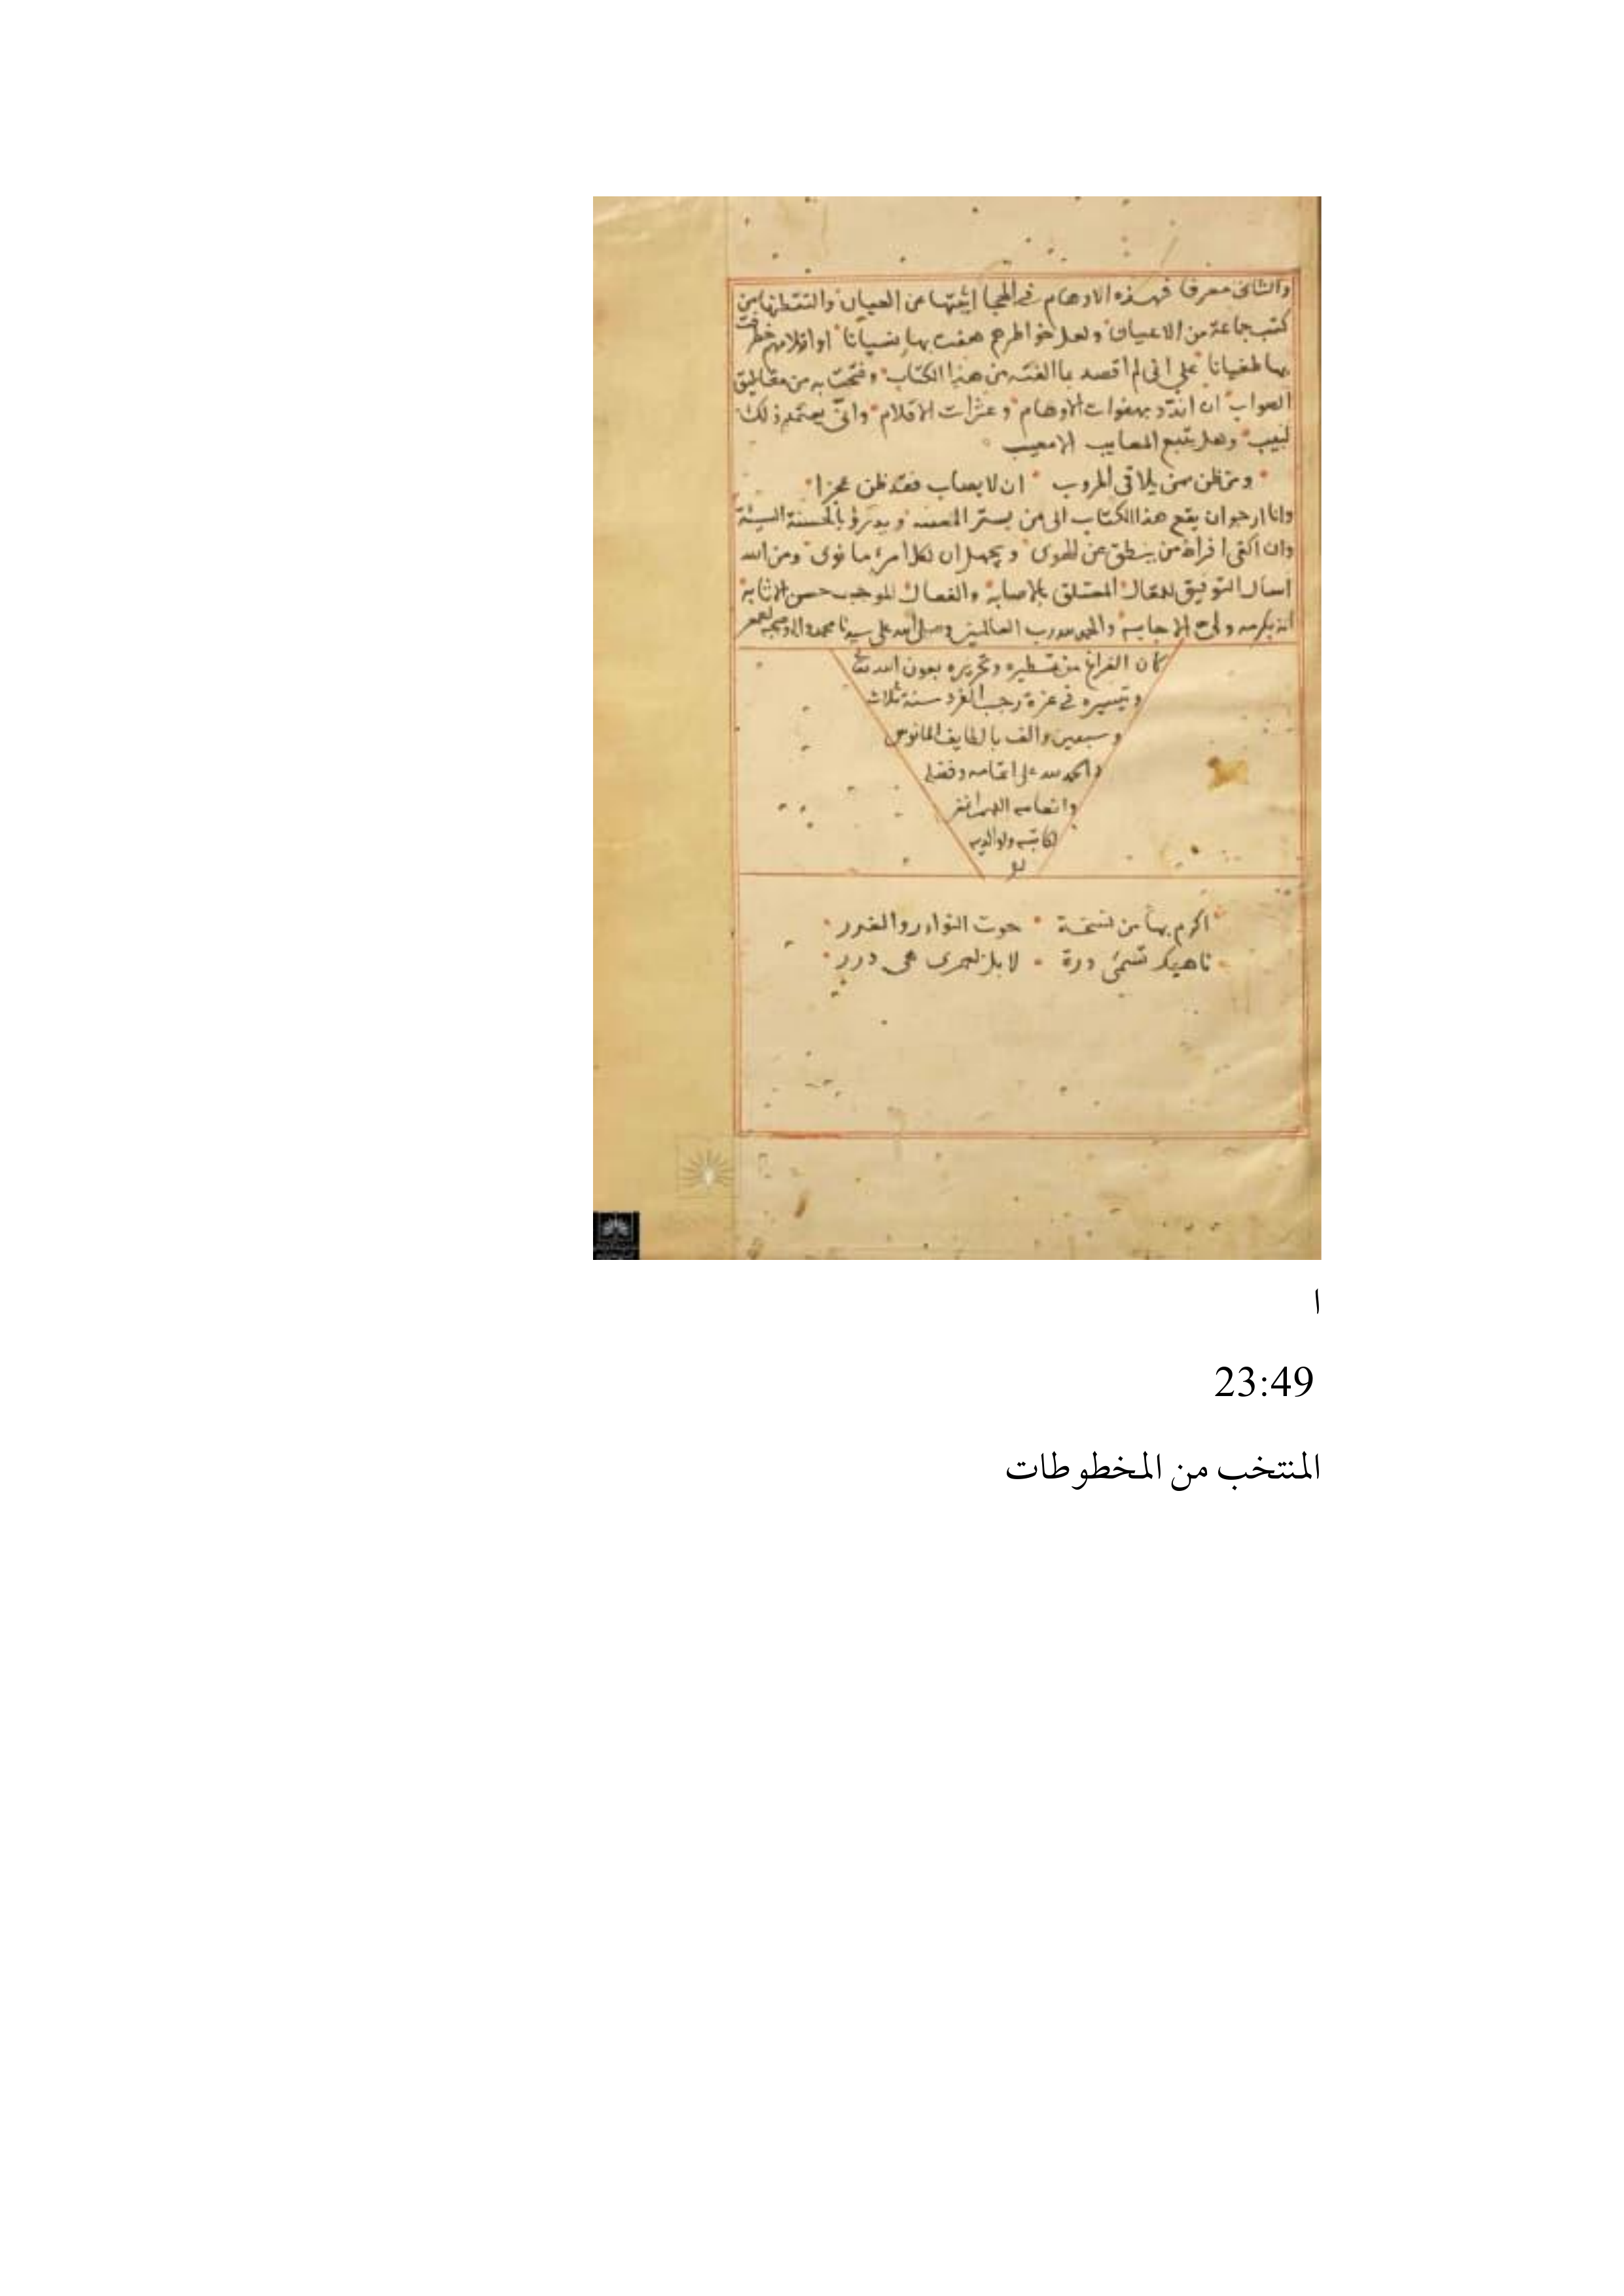 والثانى معرفا فهذه الاوهام فى الهجا اثبتها عن العيان والتقطتها من
كتب جماعة من الاعيان ولعل خواطرهم هفت بها نسيانا او اقلامهم خطرفت
بها طغيانا على انى لم اقصد بما الفته من هذا الكتاب وفتحت به من مغاليق
الصواب ان اندد بهفوات الاوهام وعثرات الاقلام وانى يعتمد ذلك
لبيب وهل يتبع المعايب الا معيب
ومن ظن ممن يلاقى الحروب ان لا يصاب فقد ظن عجزا
وانا ارجو ان يقع هذا الكتاب الى من يستر ويدرؤ بالحسنة السيئة
وان اكفى افراط من ينطق عن الهوى ويجهل ان لكل امرء ما نوى ومن الله
اسال التوفيق للمقال المتعلق بالاصابة والفعال الموجب حسن الاثابة
انه بكرمه ولى الاجابه والحمد لله رب العالمين وصلى الله على سيدنا محمد واله وصحبه
كان الفراغ من تسطيره وتحريره بعون الله تعالى
وتيسيره فى غرة رجب الفرد سنة ثلاث
وسبعين والف بالطايف المانوس
والحمد لله على اتمامه وفضله
وانعامه اللهم اغفر
لكاتبه ولوالديه
اكرم بها من نسخة حوت النوادر والغرر
ناهيك تسمى درة لا بل لعمرى هى درر
ا
23:49
المنتخب من المخطوطات